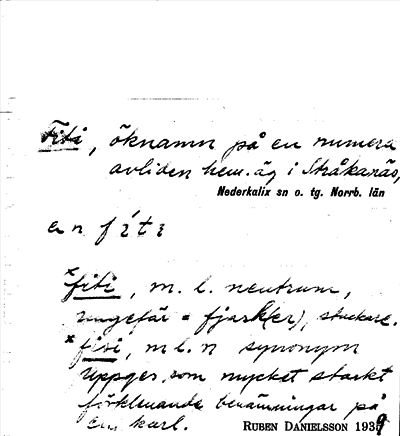 Fiti, öknamn på en numera
avliden hem.äg i Stråkanäs,
Nederkalix sn o. tg. Norrb. län
en fiti
*fiti, m. l. neutrum,
ungefär = fjask(er), stackare.
*fisi, m l. n synonym
uppges, som mycket starkt
förklenande benämningar på
en karl.
RUBEN DANIELSSON 1939